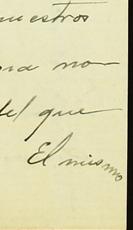 nuestros
una no-
del que
El mismo